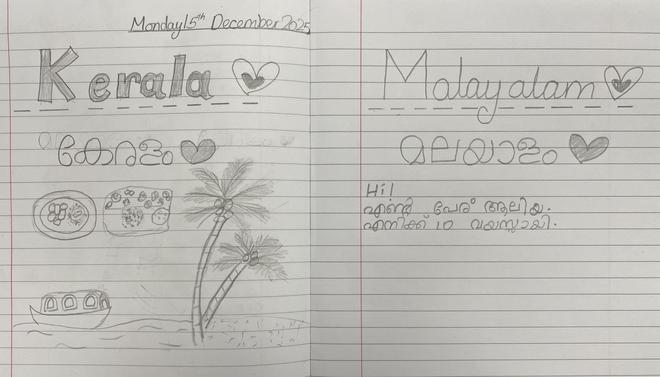 Monday 15th December 2025
Kerala
കേരളം
Malayalam
മലയാളം
Hi!
എൻ്റെ പേര് ആലിയ.
എനിക്ക് 10 വയസ്സായി.